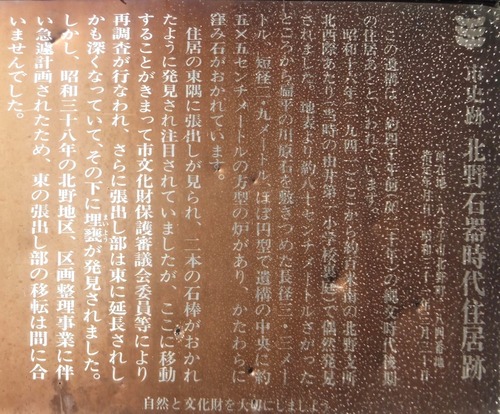 市史跡 北野石器時代住居跡
所在地 八王子市北野町
指定年月日 昭和三十
この遺構は、約四千年前の縄文時代後期
の住居あとといわれています。
昭和十六年(一九四一)ここから約百米南の北野支所
北西隅あたり(当時の由井第一小学校校庭)で偶然発見
されました。地表より約八十センチメートルさがった
ところから扁平の川原石を敷きつめた長径三・三メー
トル、短径二・九メートル、ほぼ円型で遺構の中央に約
五×五センチメートルの方型の炉があり、かたわらに
窪み石がおかれています。
住居の東隅に張出しが見られ、二本の石棒がおかれ
たように発見され注目されていましたが、ここに移動
することがきまって市文化財保護審議会委員等により
再調査が行なわれ、さらに張出し部は東に延長されし
かも深くなっていて、その下に埋甕が発見されました。
まいよう
しかし、昭和三十八年の北野地区、区画整理事業に伴
い急遽計画されたため、東の張出し部の移転は間に合
いませんでした。
自然と文化財を大切にしましょう